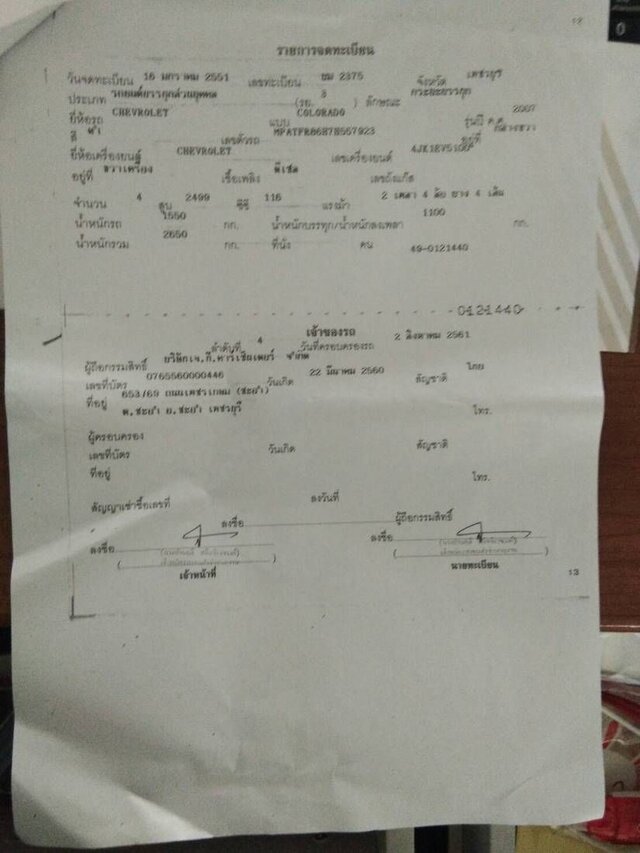 12
รายการจดทะเบียน
วันจดทะเบียน 16 มกราคม 2551 เลขทะเบียน ขม 2375 จังหวัด เพชรบุรี
ประเภท รถยนต์บรรทุกส่วนบุคคล (รย. 3 ) ลักษณะ กระบะบรรทุก
ยี่ห้อรถ CHEVROLET แบบ COLORADO รุ่นปี ค.ศ. 2007
สี ดำ เลขตัวรถ อยู่ที่
ยี่ห้อเครื่องยนต์ CHEVROLET เลขเครื่องยนต์
อยู่ที่ ขวาเครื่อง เชื้อเพลิง ดีเซล เลขถังแก๊ส
จำนวน 4 สูบ 2499 ซีซี 116 แรงม้า 2 เพลา 4 ล้อ ยาง 4 เส้น
น้ำหนักรถ 1550 กก. น้ำหนักบรรทุก/น้ำหนักลงเพลา 1100 กก.
น้ำหนักรวม 2650 กก. ที่นั่ง คน 49-0121440
0121440
เจ้าของรถ
ลำดับที่ 4 วันที่ครอบครองรถ 2 สิงหาคม 2561
ผู้ถือกรรมสิทธิ์ จำกัด
เลขที่บัตร 0765560000446 วันเกิด 22 มีนาคม 2560 สัญชาติ ไทย
ที่อยู่ 653/69 ถนนเพชรเกษม (ชะอำ)
ต.ชะอำ อ.ชะอำ เพชรบุรี โทร.
ผู้ครอบครอง
เลขที่บัตร วันเกิด สัญชาติ
ที่อยู่ โทร.
สัญญาเช่าซื้อเลขที่ ลงวันที่
ลงชื่อ ผู้ถือกรรมสิทธิ์
ลงชื่อ ลงชื่อ
เจ้าหน้าที่ นายทะเบียน
13